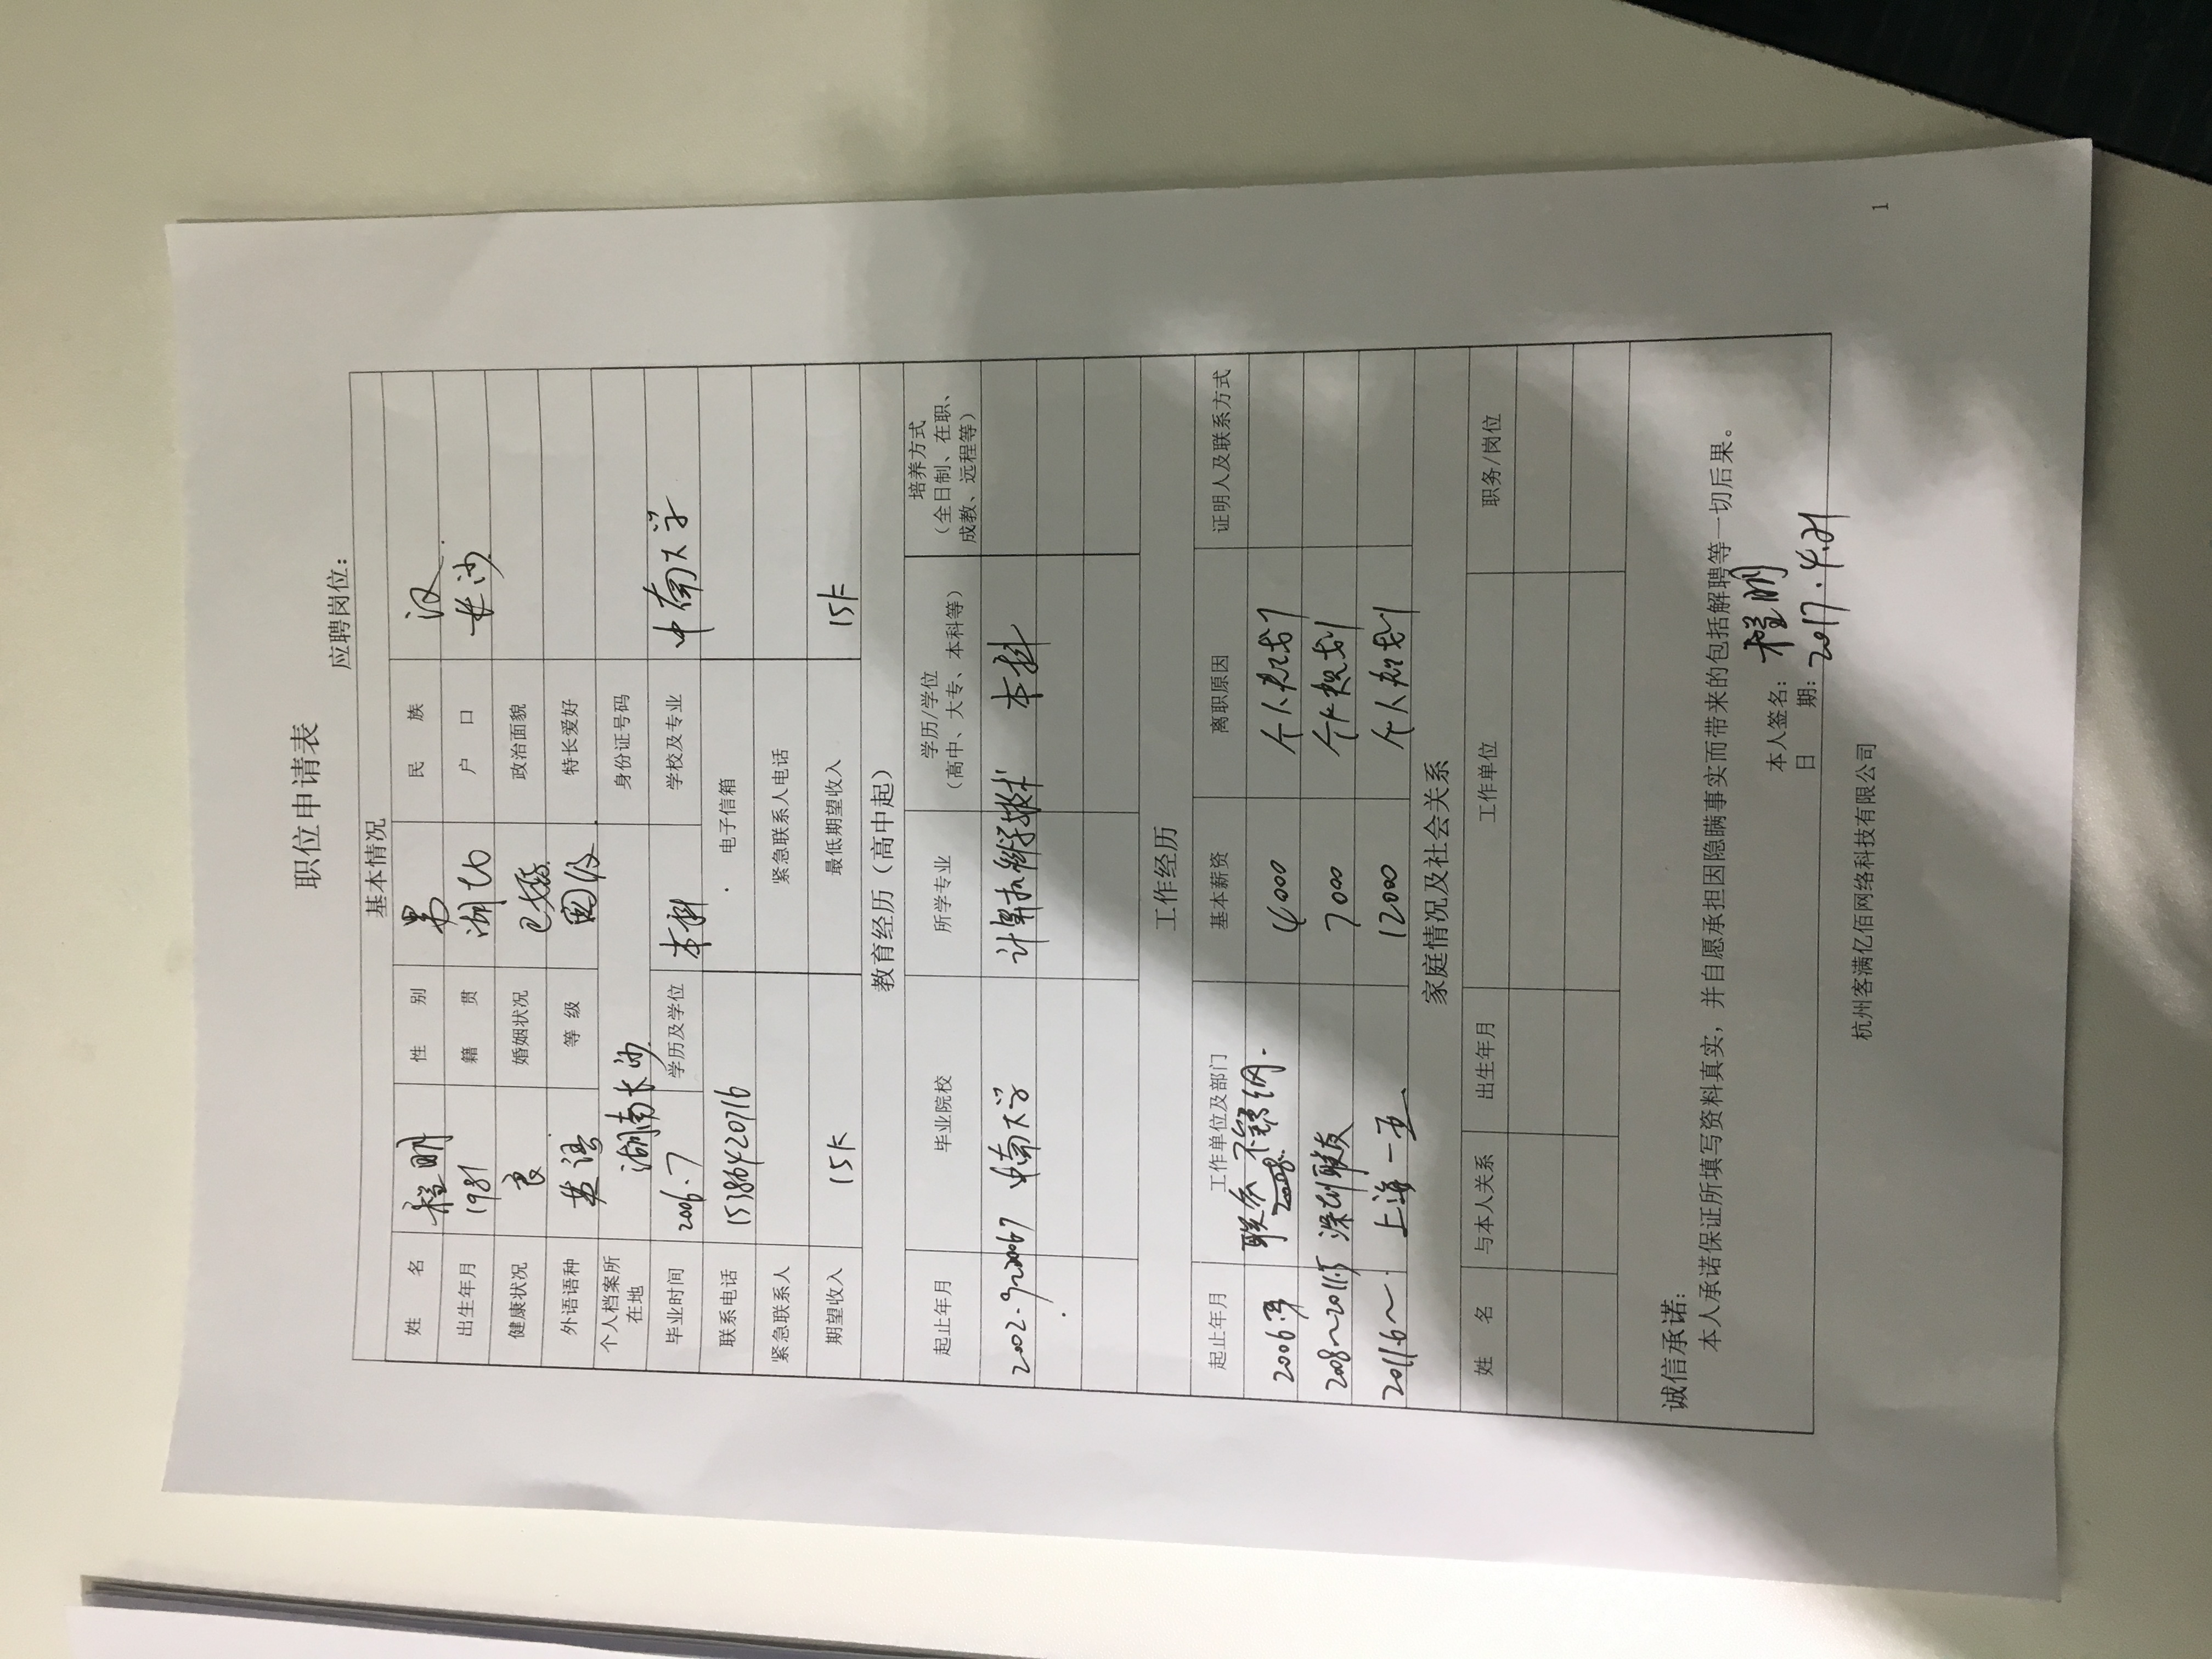 职位申请表
应聘岗位：
基本情况
姓 名 程明 性 别 男 民 族 汉
出生年月 1981 籍 贯 湖北 户 口 长沙
健康状况 良 婚姻状况 已婚 政治面貌
外语语种 英语 等 级 四级 特长爱好
个人档案所在地 湖南长沙 身份证号码
毕业时间 2006.7 学历及学位 本科 学校及专业 中南大学
联系电话 15386420716 电子信箱
紧急联系人 紧急联系人电话
期望收入 15K 最低期望收入 15K
教育经历（高中起）
起止年月 毕业院校 所学专业 学历/学位（高中、大专、本科等） 培养方式（全日制、在职、成教、远程等）
2002.9~2006.7 中南大学 计算机科学与技术 本科
工作经历
起止年月 工作单位及部门 基本薪资 离职原因 证明人及联系方式
2006 联众不锈钢. 4000 个人规划
2008~2011.5 深圳联友 7000 个人规划
2011.6~ 上海一五 12000 个人规划
家庭情况及社会关系
姓 名 与本人关系 出生年月 工作单位 职务/岗位
诚信承诺：
本人承诺保证所填写资料真实，并自愿承担因隐瞒事实而带来的包括解聘等一切后果。
本人签名：程明
日 期：2017.4.21
杭州客满亿佰网络科技有限公司
1